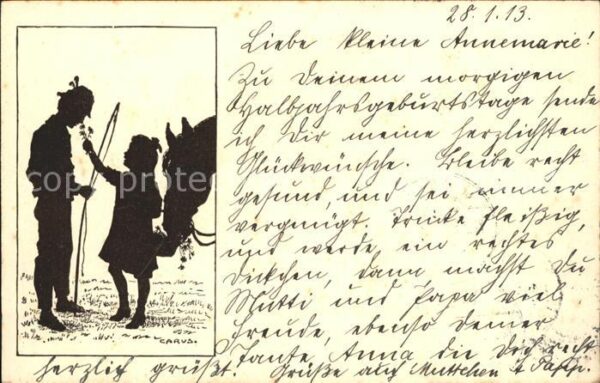 28.1.13.
Liebe kleine Annemarie!
Zu Deinem morgigen
Halbjahrsgeburtstage sende
ich Dir meine herzlichsten
Glückwünsche. Bleibe recht
gesund, und sei immer
vergnügt, trinke fleißig,
und werde, ein rechtes
Dickchen, dann machst Du
Mutti und Papa viel
Freude, ebenso Deiner
Tante Anna die Dich recht
herzlich grüßt! Grüße auch Muttchen
CARUS.
copy protec